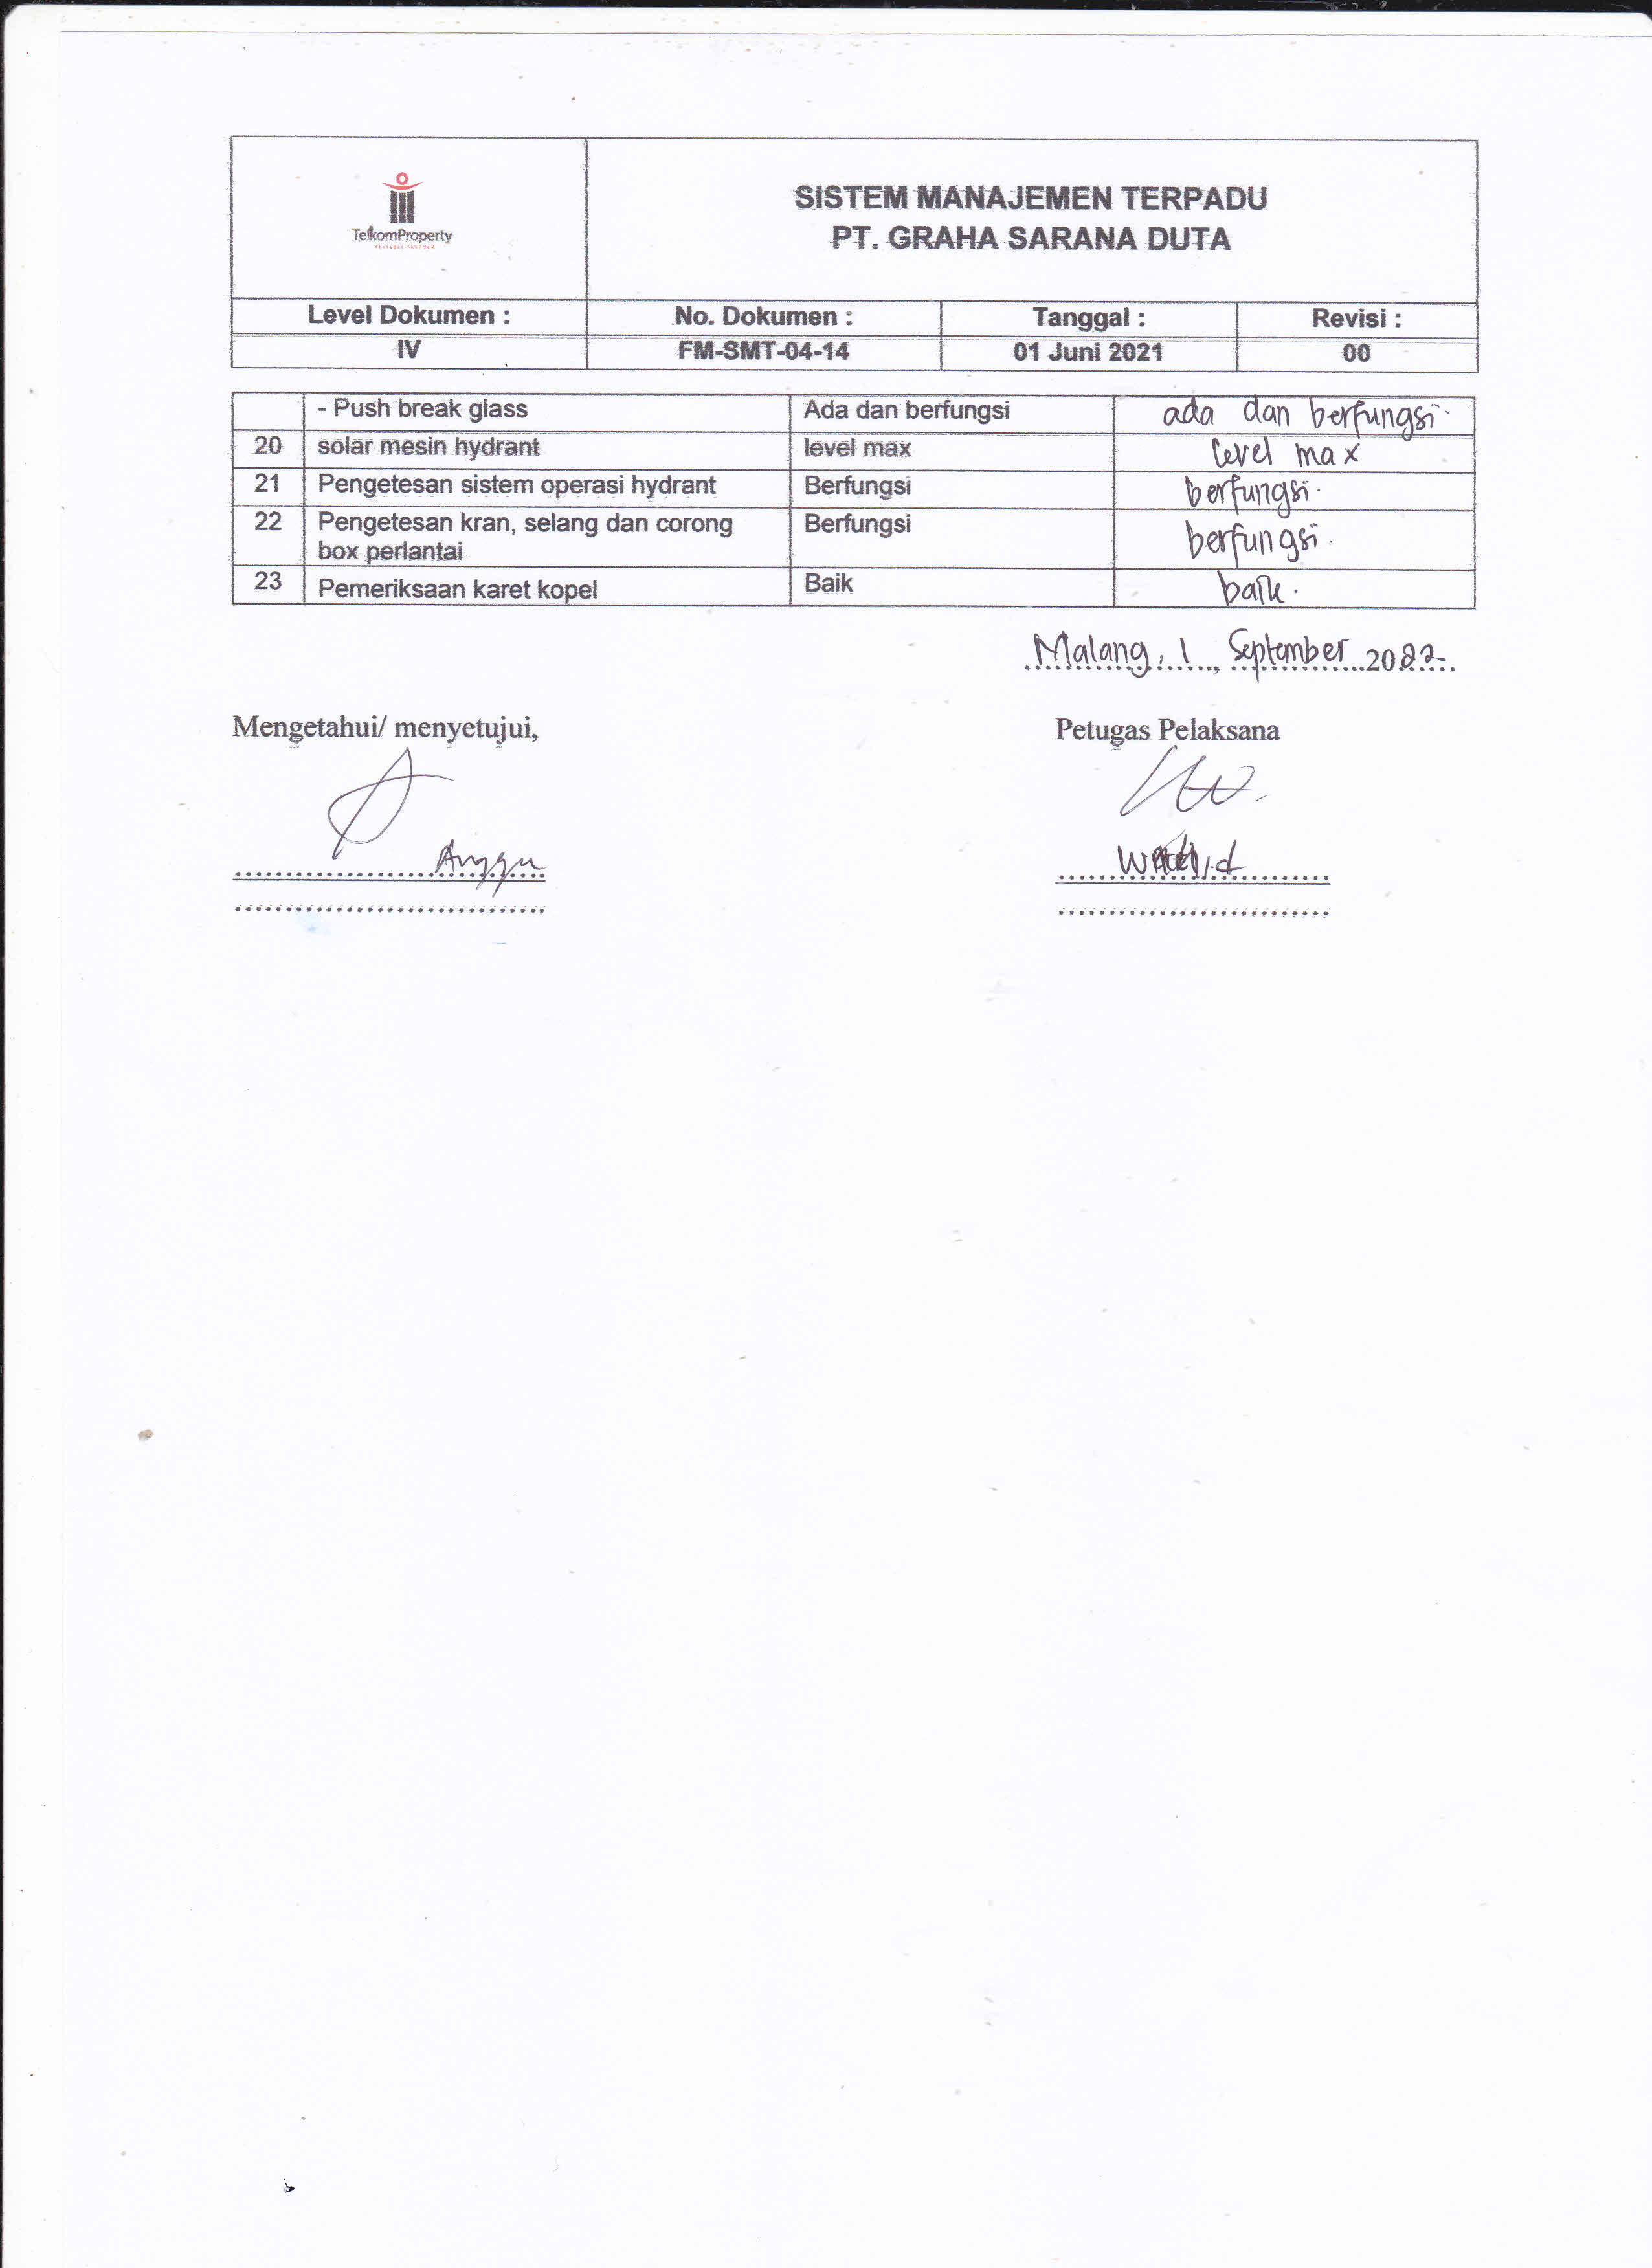 TelkomProperty
SISTEM MANAJEMEN TERPADU
PT. GRAHA SARANA DUTA
Level Dokumen : No. Dokumen : Tanggal : Revisi :
IV FM-SMT-04-14 01 Juni 2021 00
- Push break glass Ada dan berfungsi ada dan berfungsi.
20 solar mesin hydrant level max level max
21 Pengetesan sistem operasi hydrant Berfungsi berfungsi.
22 Pengetesan kran, selang dan corong Berfungsi berfungsi.
box perlantai
23 Pemeriksaan karet kopel Baik baik.
Malang, 1, September 2022
Mengetahui/ menyetujui, Petugas Pelaksana